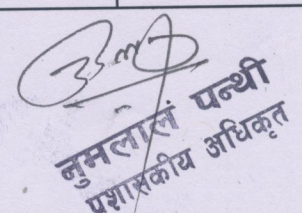 नुमलाल पन्थी
प्रशासकीय अधिकृत